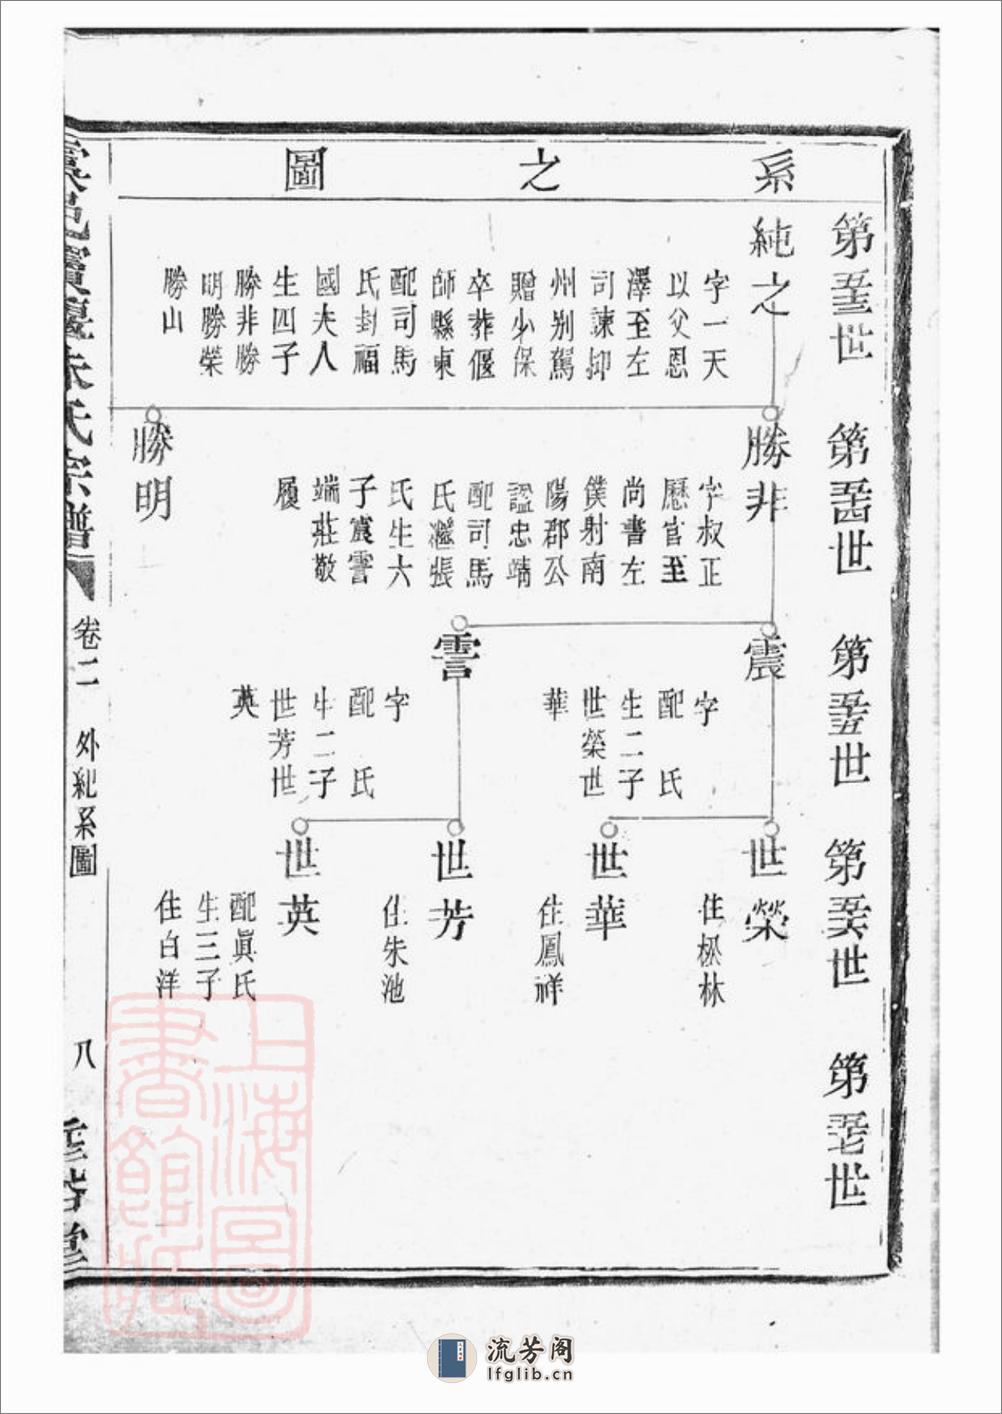 系之圖
第五十三世
純之
字一天
以父恩
澤至左
司諫抑
州别駕
贈少保
卒葬偃
師縣東
配司馬
氏封福
國夫人
生四子
勝非勝
明勝榮
勝山
第五十四世
勝非
字叔正
歷官至
尚書左
僕射南
陽郡公
諡忠靖
配司馬
氏繼張
氏生六
子震雩
端莊敬
履
勝明
第五十五世
震
字
配 氏
生二子
世榮世
華
雩
字
配 氏
生二子
世芳世
英
第五十六世
世榮
住松林
世華
住鳳祥
世芳
住朱池
世英
配眞氏
生三子
住白洋
第五十七世
朱氏宗譜
卷二 外紀系圖
八
上海圖書館藏
流芳阁
lfglib.cn